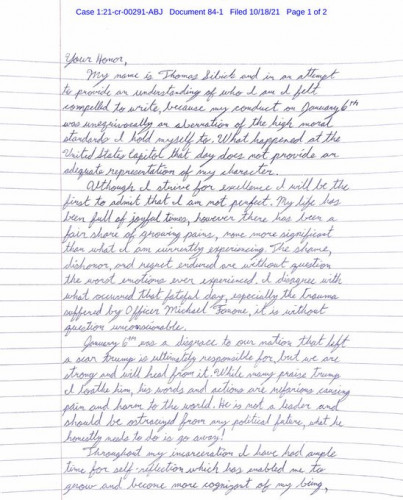 Case 1:21-cr-00291-ABJ Document 84-1 Filed 10/18/21 Page 1 of 2
Your Honor,
My name is Thomas Sibick and in an attempt
to provide an understanding of who I am I felt
compelled to write, because my conduct on January 6th
was unequivocally an aberration of the high moral
standards I hold myself to. What happened at the
United States Capitol that day does not provide an
adequate representation of my character.
Although I strive for excellence I will be the
first to admit that I am not perfect. My life has
been full of joyful times, however there has been a
fair share of growing pains, none more significant
than what I am currently experiencing. The shame,
dishonor, and regret endured are without question
the worst emotions ever experienced. I disagree with
what occurred that fateful day, especially the trauma
suffered by Officer Michael Fanone, it is without
question unconscionable.
January 6th was a disgrace to our nation that left
a scar trump is ultimately responsible for, but we are
strong and will heal from it. While many praise trump
I loathe him, his words and actions are nefarious causing
pain and harm to the world. He is not a leader and
should be ostracized from any political future, what he
honestly needs to do is go away!
Throughout my incarceration I have had ample
time for self-reflection which has enabled me to
grow and become more cognizant of my being,